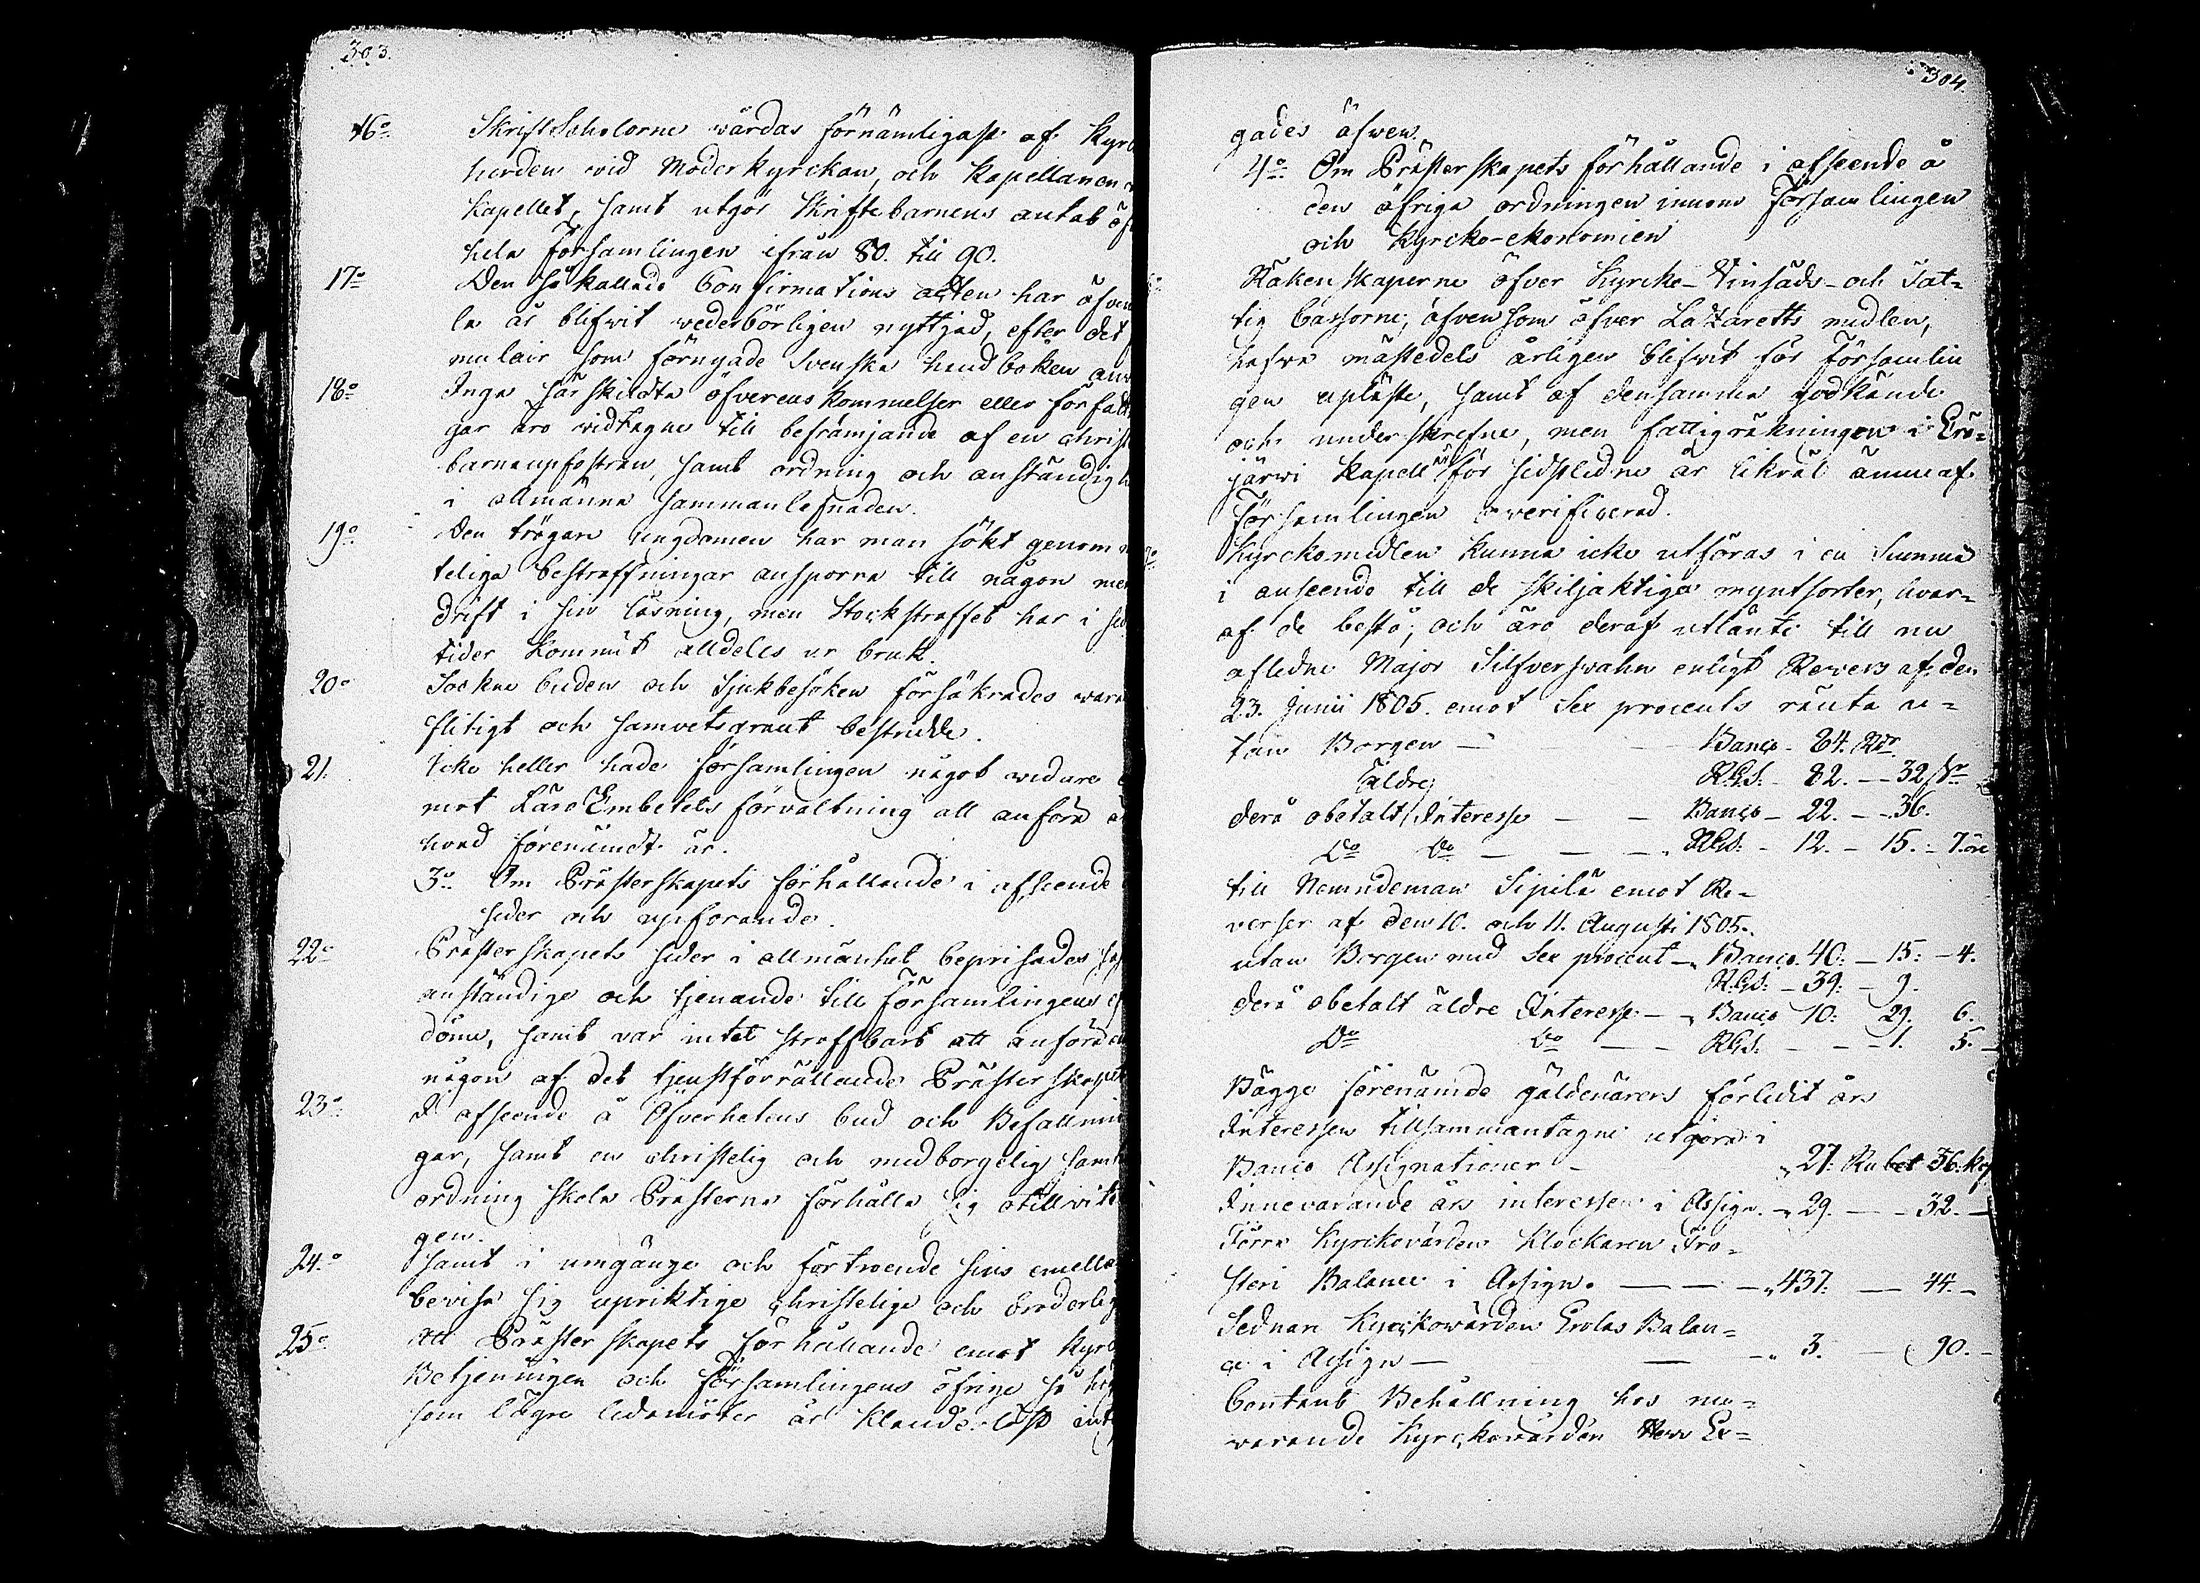 303.
16o Skriftscholorne wårdas förnämligast af Kyrc
herden wid Moderkyrckan, och Kapellanen
Kapellet, samt utgör Skriftebarnens antal öf
hela Församlingen ifrån 80. till 90.
17o Den så kallade Confirmations acten har öfven
le år blifwit wederbörligen nyttjad, efter det
mulair som förnyade Svenska handboken anv
18o Inga särskildta öfverenskommelser eller författ
gar äro widtagne till befrämjande af en christ
barnaupfostran, samt ordning och anständigh
i allmänna sammanlefnaden.
19o Den trögare ungdomen har man sökt genom
teliga bestraffningar ansporra till någon mer
drift i sin läsning, men Stockstraffet har i se
tider kommit alldeles ur bruk.
20o Sockne buden och Sjukbesöken försäkrades wara
flitigt och samvetsgrant bestridde.
21. Icke heller hade församlingen något widare
mot Läro Embetets förvaltning att anföra
hvad förenämdt är.
3o Om Prästerskapets förhållande i afseende
seder och upförande.
22o Prästerskapets seder i allmänhet beprisades så
anständige och tjenande till Församlingens ef
döme, samt var intet straffbart att anföra
någon af det tjenstförrättande Prästerskapet
23o I afseende å Öfverhetens bud och Befallnin
gar, samt en christelig och medborgelig samh
ordning skola Prästerne förhålla sig otillvite
gen.
24o samt i umgänge och förtroende sins emella
bevisa sig upriktige christelige och broderlig
25o Att Prästerskapets förhållande emot Kyrc
Betjeningen och Församlingens öfrige så hög
som lägre ledamöter är klanderlöst int
304.
gades äfwen.
4o Om Prästerskapets förhållande i afseende å
den öfriga ordningen innom Församlingen
och Kyrcko-ekonomien
Räkenskaperne öfver Kyrcke- Vinsäds- och Fat-
tig Cassorne, äfvensom öfver Lazaretts medlen,
hafva mästedels årligen blifwit för Församlin
gen upläste, samt af densamma godkände
och underskrefne, men fattigräkningen i Erä-
järwi Kapell är för sidstledne år likväl ännu af
Församlingen overificerad.
Kyrckomedlen kunna icke utföras i en Summa
i anseende till de skiljaktiga myntsorter, hvar-
af de bestå, och äro deraf utlånte till nu
afledne Major Silfversvahn enligt Revers af den
23. Junii 1805. emot Sex procents ränta u-
tan Borgen — Banco - 24. Rdr
R.G.S. - 82. - - 32 sk
derå obetalt äldre Interesse — — Banco - 22. - - 36.
Do Do — — — „ RGS. - 12. - 15. - 7. rs
till Nemndeman Sipilä emot Re-
verser af den 10. och 11. Augusti 1805.
utan Borgen med Sex procent - „ Banco 40. - 15. - 4.
R.G.S. - 39. - 9.
derå obetalt äldre Interesse - „ Banco 10. 29. 6.
Do Do — — RGS. - - - 1. 5. -
Bägge förenämde gäldenärers förledit års
Interessen tillsammantagne utgöra i
Banco Assignationer - „ 27. Rubel 36. kop
Innevarande års interessen i Assign. - „ 29. — - 32. -
Förra Kyrckovärden Klockaren Fro-
steri Balance i Assign. — — - „ 437. — 44. -
Sednare Kyrckovärden Erolas Balan-
ce i Assign — — - „ 3. — 90. -
Contant Behållning hos nu-
warande Kyrckovärden Herr Er-